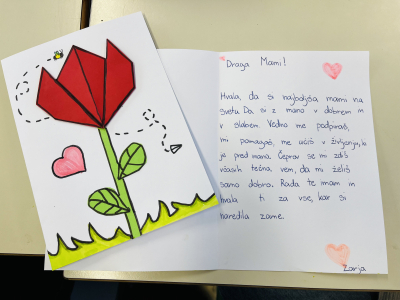 Draga Mami!
Hvala, da si najboljša mami na
svetu. Da si z mano v dobrem in
v slabem. Vedno me podpiraš,
mi pomagaš, me učiš v življenju, ki
je pred mano. Čeprav se mi zdiš
včasih tečna vem, da mi želiš
samo dobro. Rada te imam in
hvala ti za vse, kar si
naredila zame.
Zarja